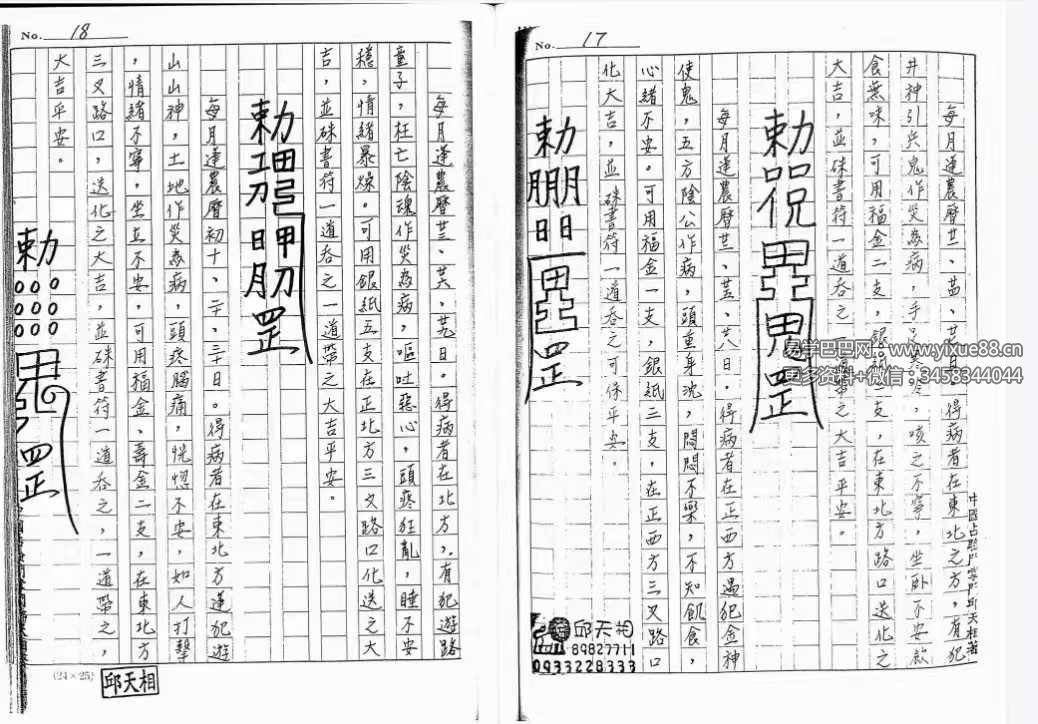 No. 17
每月逢農曆廿一、廿四、廿七日。得病者在東北之方,有犯
井神引兵鬼作災為病,手足寒冷,咳之不寧,坐臥不安飲
食無味,可用福金二支,銀紙 支,在東北方路口送化之
大吉,並硃書符一道吞之 道帶之大吉平安。
勅
每月逢農曆廿二、廿五、廿八日。得病者在正西方遇犯金神
使鬼,五方陰公作病,頭重身沈,悶悶不樂,不知飢食,
心緒不安。可用福金一支,銀紙三支,在正西方三叉路口
化大吉,並硃書符一道吞之可保平安。
勅
邱天相
89827711
0933228333
邱天相著
易学巴巴网:www.yixue88.cn
更多资料+微信:3458344044
No. 18
每月逢農曆廿三、廿六、廿九日。得病者在北方,有犯遊路
童子,枉亡陰魂作災為病,嘔吐惡心,頭疼狂亂,睡不安
穩,情緒暴燥。可用銀紙五支在正北方三叉路口化送之大
吉,並硃書符一道吞之一道帶之大吉平安。
勅
每月逢農曆初十、二十、三十日。得病者在東北方逢犯遊
山山神,土地作災為病,頭疼腦痛,恍惚不安,如人打擊
,情緒不寧,坐立不安,可用福金、壽金二支,在東北方
三叉路口,送化之大吉,並硃書符一道吞之,一道帶之,
大吉平安。
勅
(24×25)
邱天相